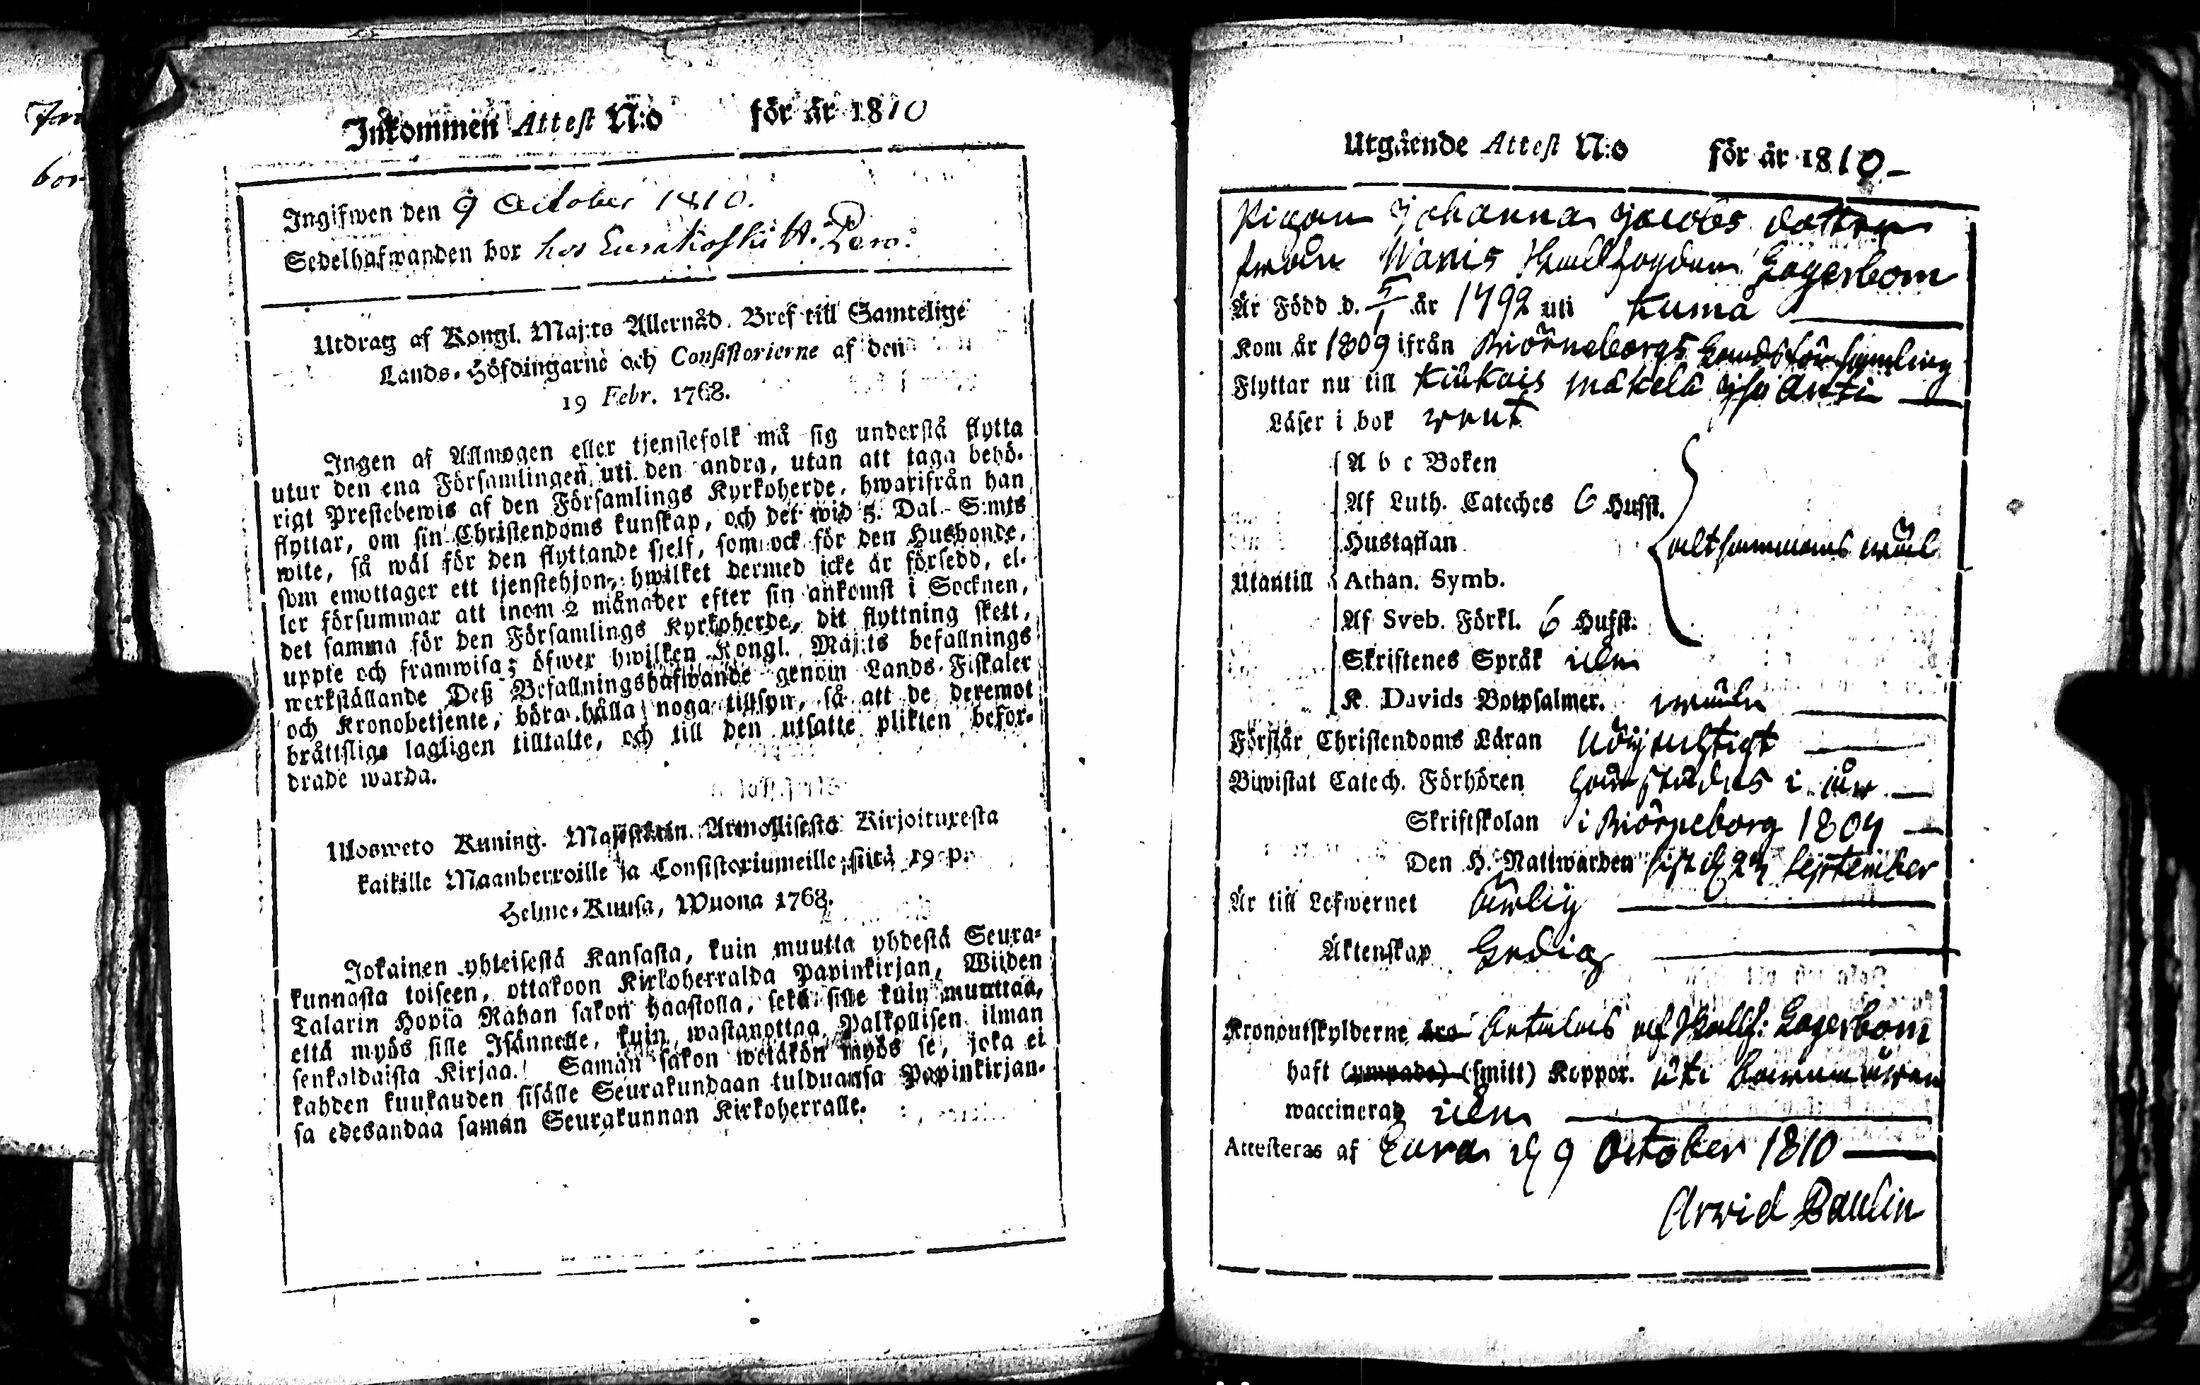 Inkommen Attest N:o för år 1810
Ingifwen den 9 October 1810.
Sedelhafwanden bor hos Eurakoski H. Pero.
Utdrag af Kongl. Maj:ts Allernåd. Bref till Samtelige
Lands-Höfdingarne och Consistorierne af den
19 Febr. 1768.
Ingen af Allmogen eller tjenstefolk må sig understå flytta
utur den ena Församlingen uti den andra, utan att taga behö-
rigt Prestebewis af den Församlings Kyrkoherde, hwarifrån han
flyttar, om sin Christendoms kunskap, och det wid 5. Dal. S:mts
wite, så wäl för den flyttande sjelf, som ock för den Husbonde,
som emottager ett tjenstehjon, hwilket dermed icke är försedd, el-
ler försummar att inom 2 månader efter sin ankomst i Socknen,
det samma för den Församlings Kyrkoherde, dit flyttning skett,
uppte och framwisa; öfwer hwilken Kongl. Maj:ts befallnings
werkställande Deß Befallningshafwande genom Lands-Fiskaler
och Kronobetjente, böra hålla noga tillsyn, så att de deremot
bråttslige lagligen tilltalte, och till den utsatte plikten befor-
drade warda.
Ulosweto Kuning. Majestetin Armollisesta Kirjoituxesta
kaikille Maanherroille ja Consistoriumeille siitä 19 p.
Helme-Kuusa, Wuona 1768.
Jokainen yhteisestä Kansasta, kuin muutta yhdestä Seura-
kunnasta toiseen, ottakoon Kirkoherralda Papinkirjan, Wiiden
Talarin Hopia Rahan sakon haastolla, sekä sille kuin muuttaa,
että myös sille Isännelle, kuin wastanottaa Palkollisen ilman
senkaldaista Kirjaa. Samän sakon wetäkön myös se, joka ei
kahden kuukauden sisälle Seurakundaan tulduansa Papinkirjan-
sa edesandaa saman Seurakunnan Kirkoherralle.
Utgående Attest N:o för år 1810.-
Pigan Johanna Jacobs dotter
från Wanis Skallfogden Lagerbom
Är Född d. 5/1 år 1792 uti Kumå
Kom år 1809 ifrån Biörneborgs Landsförsamling
Flyttar nu till Kiukais Mäkelä Antti
Läser i bok rent
A b c Boken
Af Luth. Cateches 6 Hufst.
Hustaflan altsammans wäl
Utantill Athan. Symb.
Af Sveb. Förkl. 6 Hufst.
Skriftenes Språk
K. Davids Botpsalmer.
Förstår Christendoms Läran nöjachtigt
Biwistat Catech. Förhören i år
Skriftskolan i Biörneborg 1809
Den H. Nattwarden sist d 23 September
Är till Lefwernet ärlig
Äktenskap Ledig
Kronoutskylderne äro betalas af Skallf: Lagerbom
haft (ympade) (smitt) Koppor. uti barnaåren
waccinerad
Attesteras af Eura d 9 October 1810
Arvid Paulin